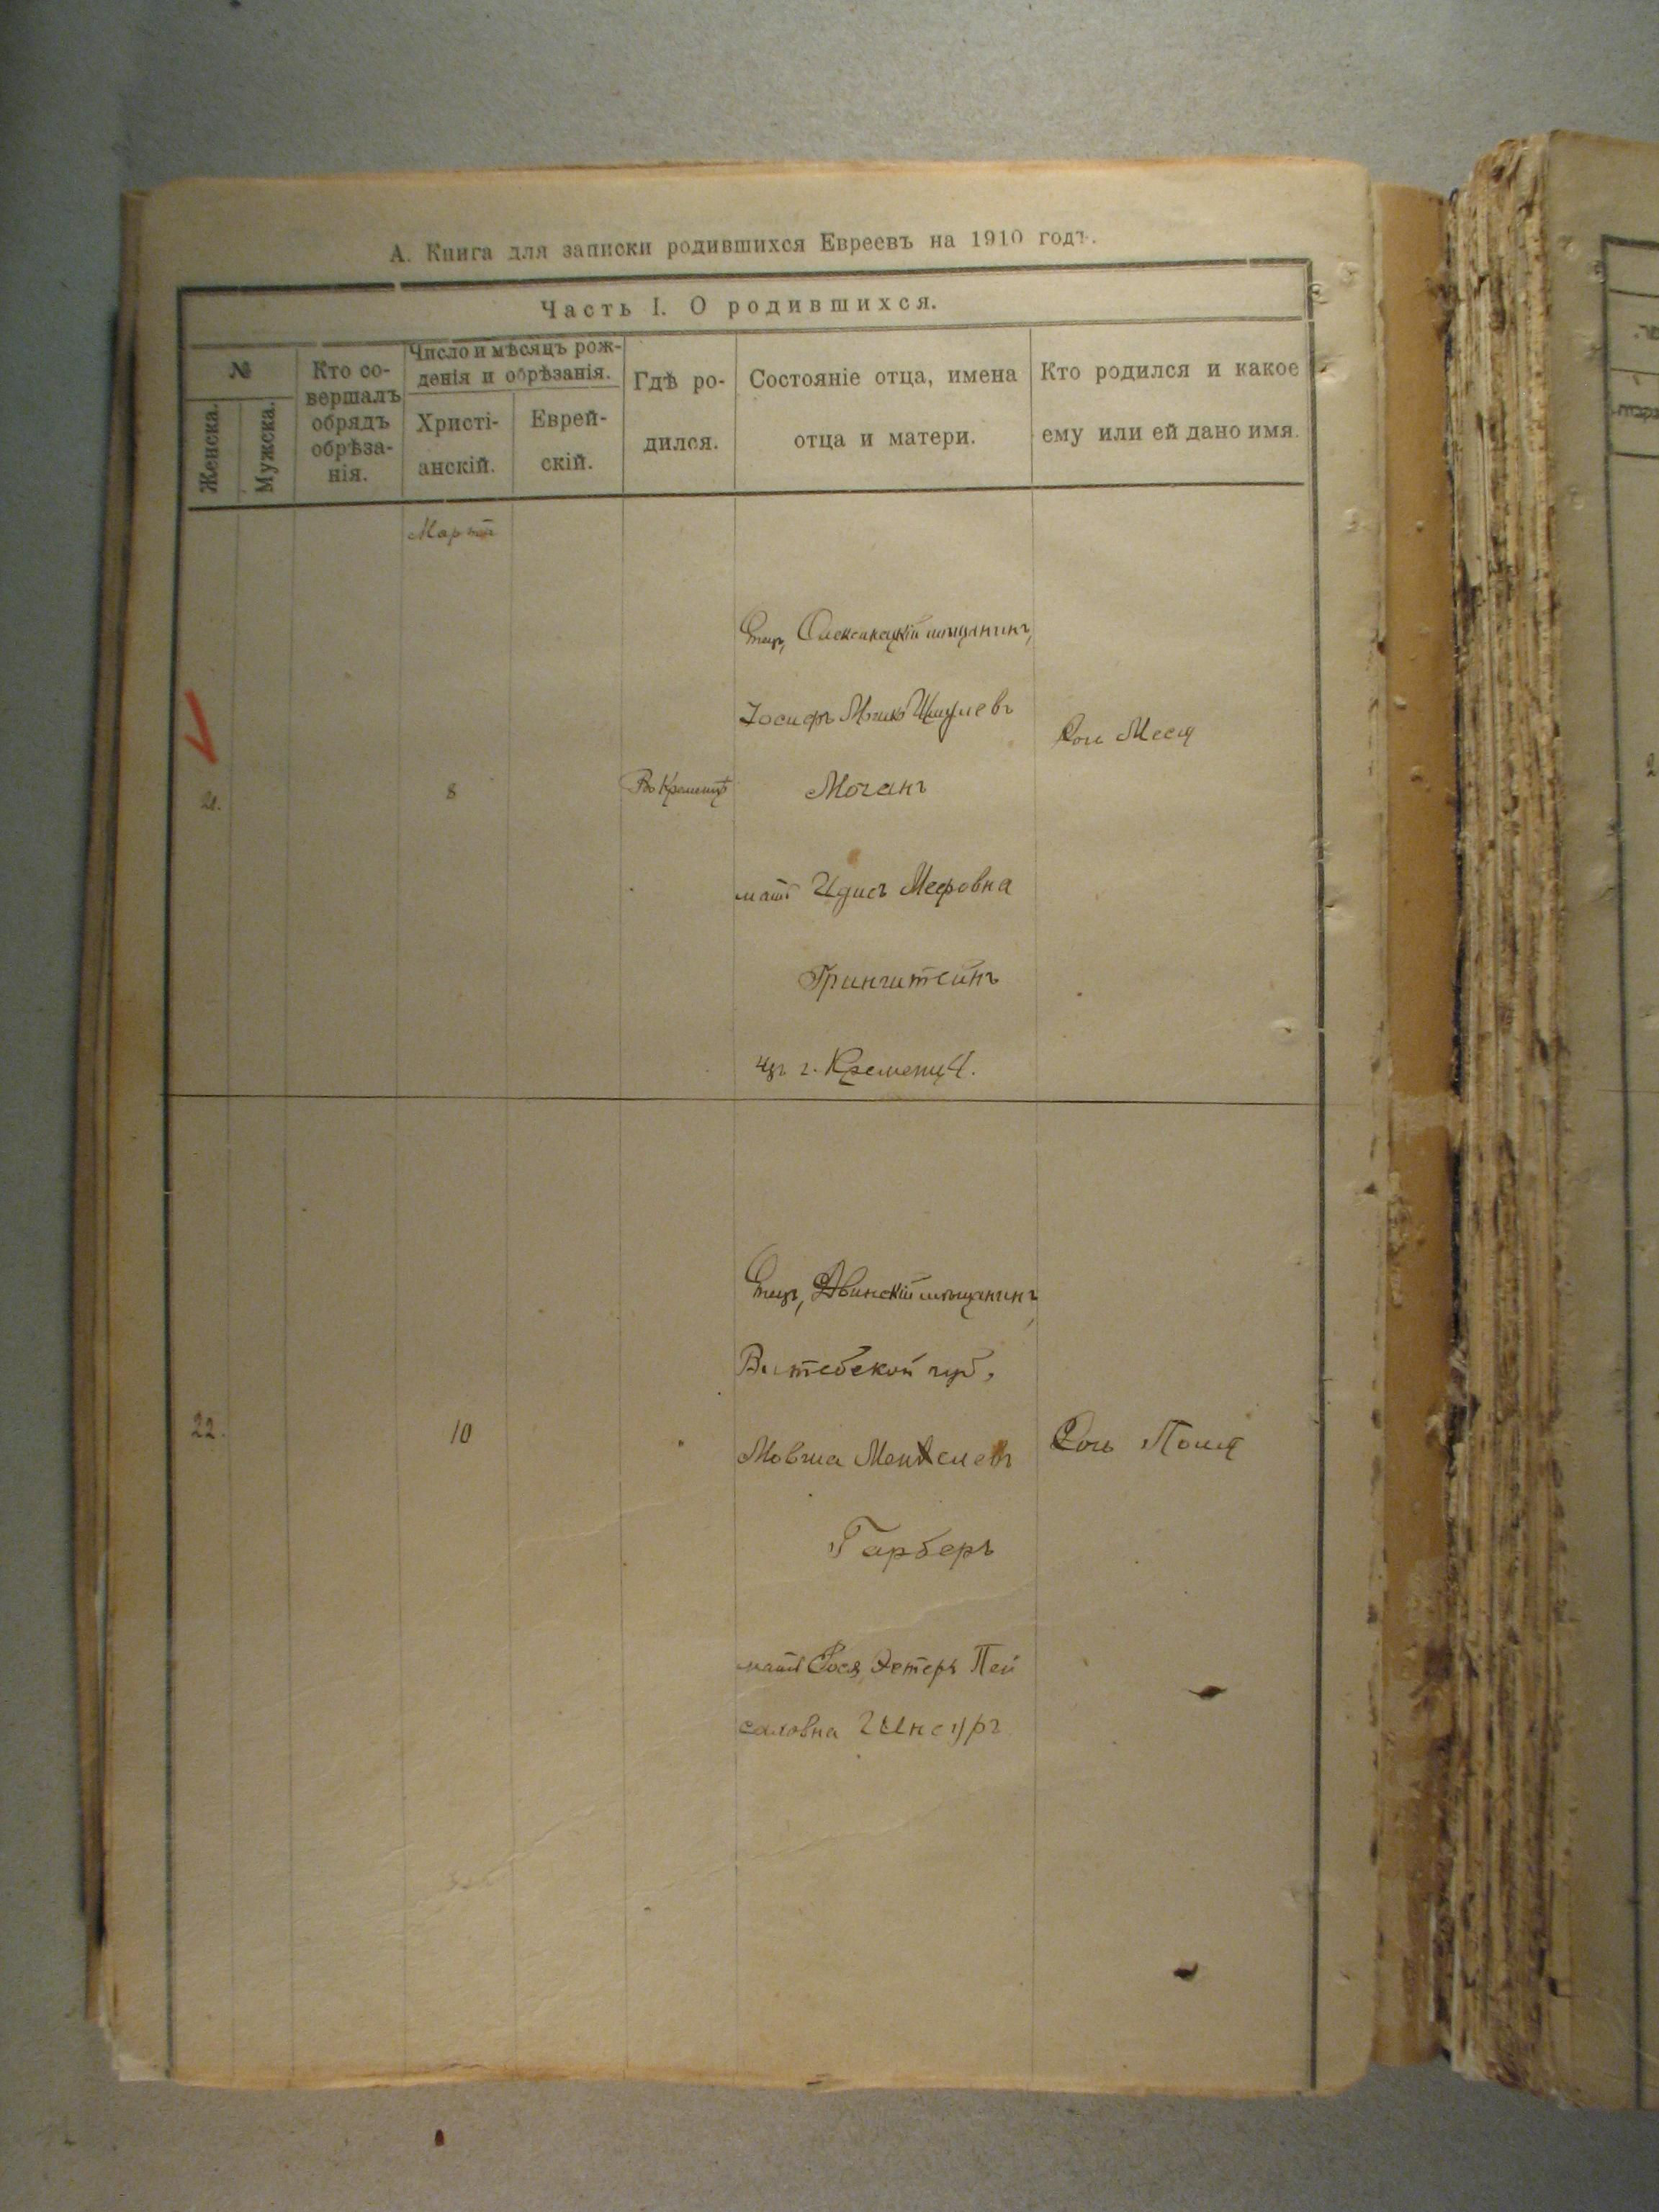 А. Книга для записки родившихся Евреевъ на 1910 годъ.
Часть I. О родившихся.
№
Женска.
Мужска.
Кто со-
вершалъ
обрядъ
обрѣза-
нія.
Число и мѣсяцъ рож-
денія и обрѣзанія.
Христі-
анскій.
Еврей-
скій.
Гдѣ ро-
дился.
Состояніе отца, имена
отца и матери.
Кто родился и какое
ему или ей дано имя.
Мартъ
21.
8
Въ Кременцѣ
Отецъ, мѣщанинъ,
Іосифъ Шмулевъ
Мочанъ
мать Идисъ Мееровна
Гринштейнъ
изъ г. Кременца.
Дочь Меся
22.
10
Отецъ, Двинскій мѣщанинъ,
Витебской губ.,
Мовша Менделевъ
Гарберъ
мать Эстеръ Пей
саховна
Дочь